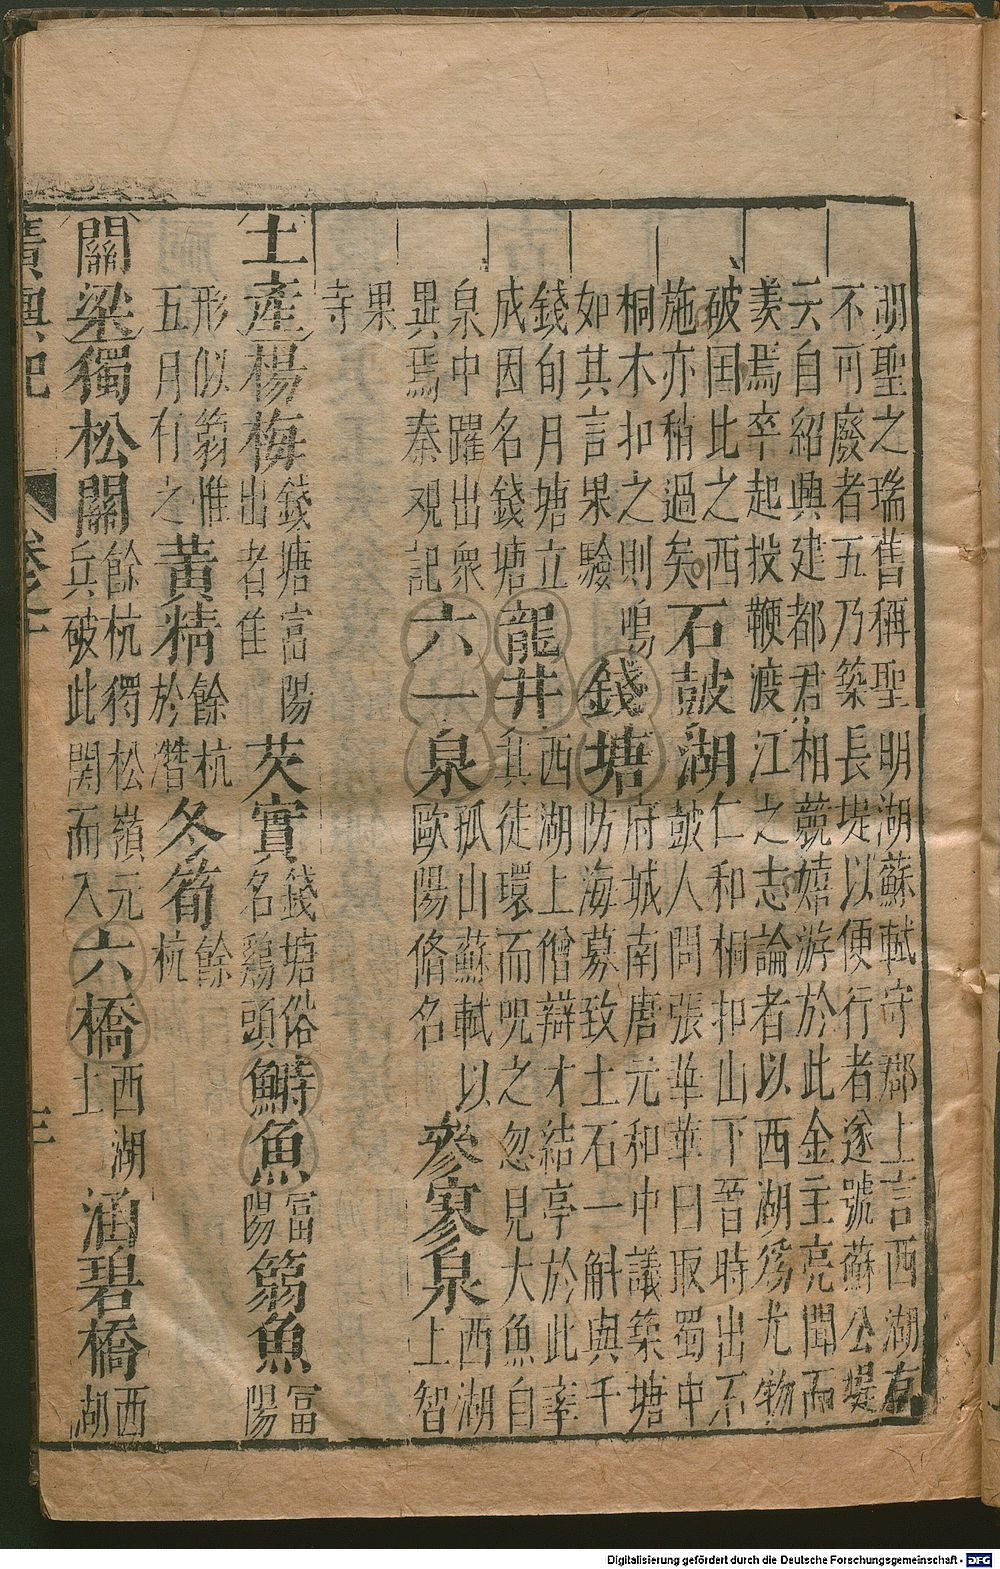 湖聖之瑞舊稱聖明湖蘇軾守郡上言西湖有
不可廢者五乃築長堤以便行者遂號蘇公堤
天自紹興建都君相競嬉游於此金主亮聞而
羨焉卒起投鞭渡江之志論者以西湖爲尤物
破國比之西
施亦稍過矣
石鼓湖
仁和桐扣山下晉時出石
鼓人問張華華曰取蜀中
桐木扣之則鳴
如其言果驗
錢塘
府城南唐元和中議築塘
防海募致土石一斛與千
錢旬月塘立
成因名錢塘
龍井
西湖上僧辯才結亭於此率
其徒環而咒之忽見大魚自
泉中躍出眾
異焉秦觀記
六一泉
孤山蘇軾以
歐陽脩名
參寥泉
西湖
上智
果
寺
土產
楊梅
錢塘富陽
出者佳
芡實
錢塘俗
名鷄頭
鰣魚
富
陽
鰳魚
富
陽
形似鰳惟
五月有之
黃精
餘杭
於潛
冬筍
餘
杭
關梁
獨松關
餘杭獨松嶺元
兵破此関而入
六橋
西湖
上
涵碧橋
西
湖
廣輿記
卷之十
Digitalisierung gefördert durch die Deutsche Forschungsgemeinschaft - DFG